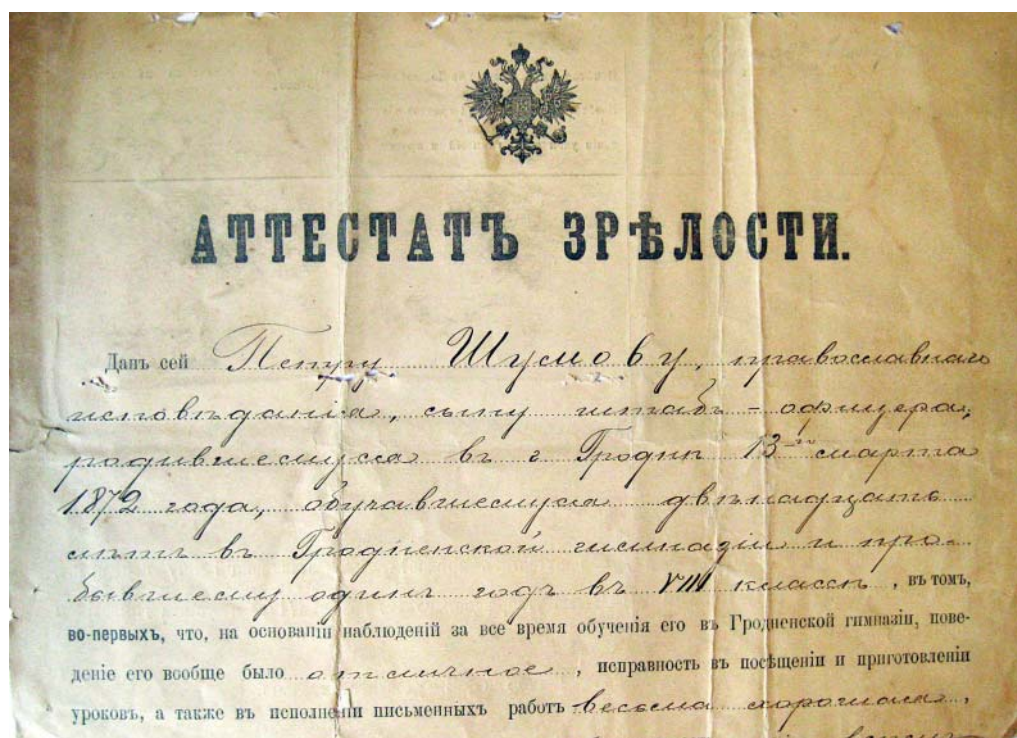 АТТЕСТАТЪ ЗРѢЛОСТИ.
Данъ сей Петру Шумову, православнаго
исповѣданія, сыну штабъ-офицера,
родившемуся въ г. Гроднѣ 13-го марта
1872 года, обучавшемуся двѣнадцать
лѣтъ въ Гродненской гимназіи и про-
бывшему одинъ годъ въ VIII классѣ, въ томъ,
во-первыхъ, что, на основаніи наблюденій за все время обученія его въ Гродненской гимназіи, пове-
деніе его вообще было отличное, исправность въ посѣщеніи и приготовленіи
уроковъ, а также въ исполненіи письменныхъ работъ весьма хорошая,